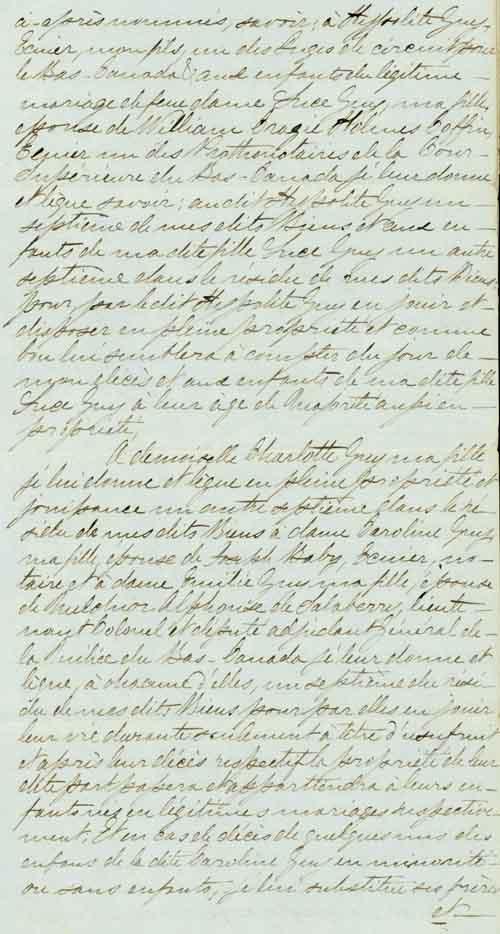 ci-après nommés, savoir; à Hyppolite Guy
Ecuier, mon fils, un des Juges de circuit pour
le Bas-Canada; aux enfants du légitime
mariage de feue dame Luce Guy, ma fille,
épouse de William Craigie Holmes Coffin,
Ecuier un des Prothonotaires de la Cour
Supérieure du Bas-Canada je leur donne
et lègue savoir; au dit Hyppolite Guy un
septième de mes dits Biens et aux en-
fants de ma dite fille Luce Guy un autre
septième dans le résidu de mes dits Biens
Pour par le dit Hyppolite Guy en jouir et
disposer en pleine propriété et comme
bon lui semblera à compter du jour de
mon décès et aux enfants de ma dite fille
Luce Guy à leur age de Majorité aussi en
propriété.
A demoiselle Charlotte Guy ma fille
je lui donne et lègue en pleine propriété et
jouissance un autre septième dans le ré-
sidu de mes dits Biens à dame Caroline Guy,
ma fille, épouse de Joseph Baby, Ecuier, no-
taire et à dame Emilie Guy, ma fille, épouse
de Melchior Alphonse de Salaberry, lieute-
nant Colonel et député adjudant Général de
la milice du Bas-Canada je leur donne et
lègue, à chacune d'elles, un septième du rési-
du de mes dits Biens pour par elles en jouir
leur vie durante seulement à titre d'usufruit
et après leur décès respectif la propriété de leur
dite part passera et appartiendra à leurs en-
fants nez en légitimes mariages respective-
ment. Et en cas de décès de quelques uns des
enfans de la dite Caroline Guy en minorité
ou sans enfants, je lui substitue ses frères
et